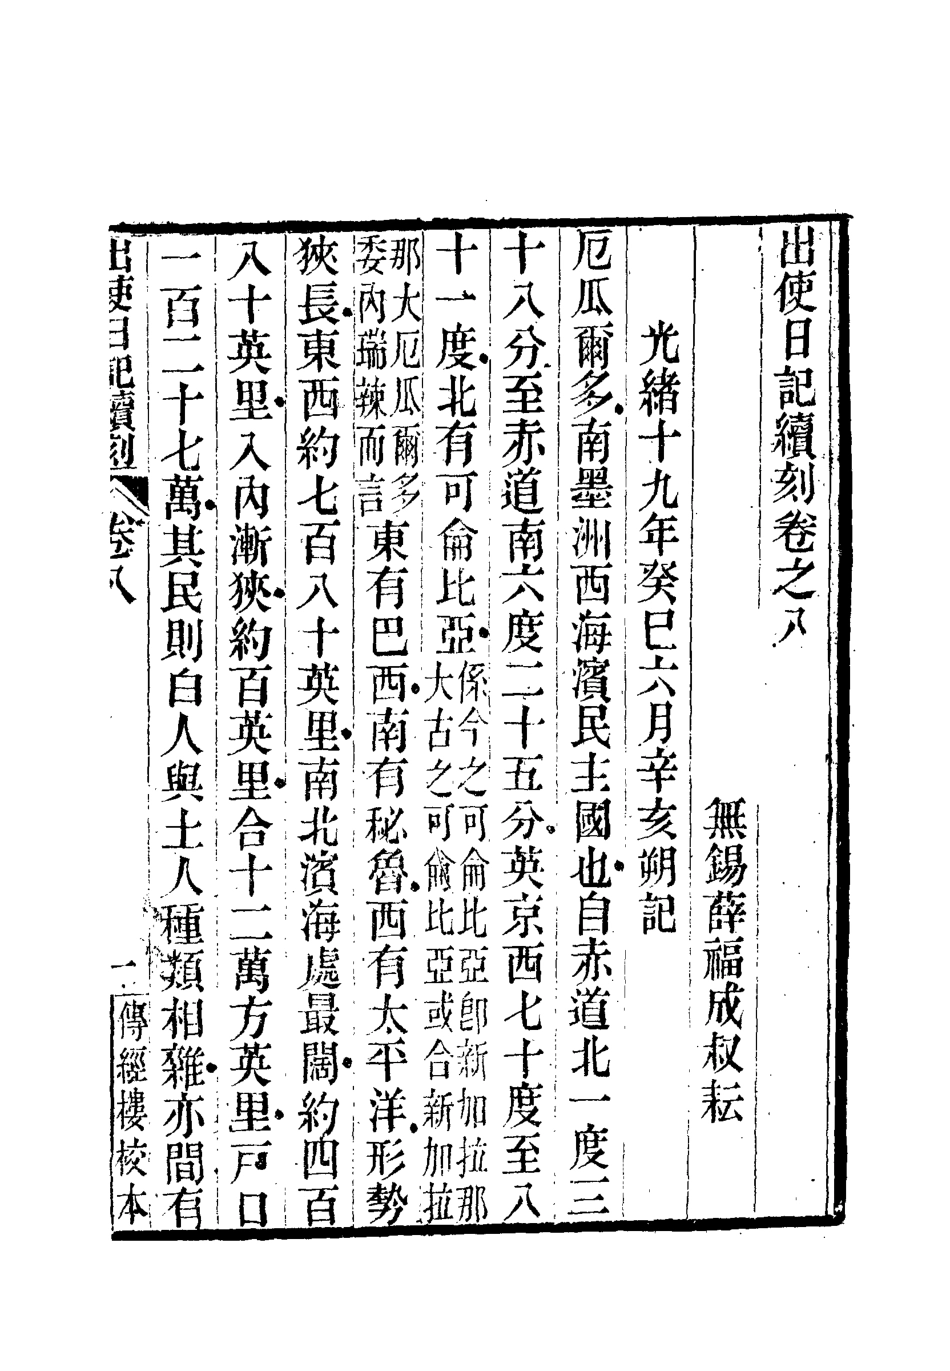 出使日記續刻卷之八
無錫薛福成叔耘
光緒十九年癸巳六月辛亥朔記
厄瓜爾多南墨洲西海濱民主國也自赤道北一度三
十八分至赤道南六度二十五分英京西七十度至八
十一度北有可侖比亞係今之可侖比亞卽新加拉那
大古之可侖比亞或合新加拉
那大厄瓜爾多
委內瑞辣而言東有巴西南有秘魯西有太平洋形勢
狹長東西約七百八十英里南北濱海處最闊約四百
八十英里入內漸狹約百英里合十二萬方英里戶口
一百二十七萬其民則白人與土人種類相雜亦間有
出使日記續刻 卷八 一 傳經樓校本